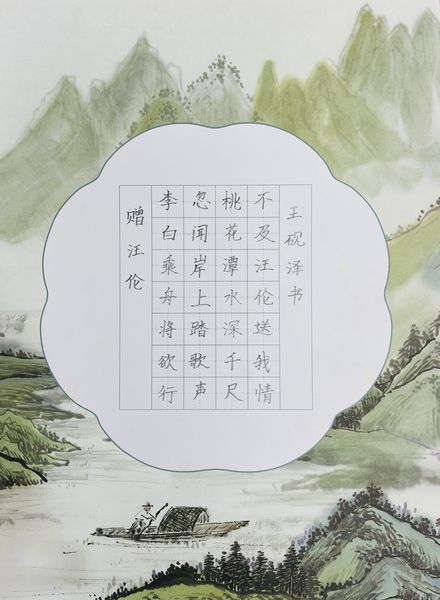 赠汪伦
李白乘舟将欲行
忽闻岸上踏歌声
桃花潭水深千尺
不及汪伦送我情
王砚泽书